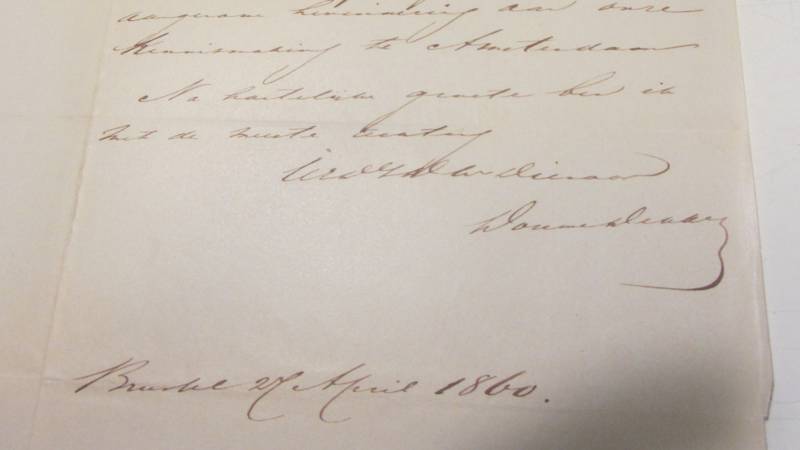 aangename herinnering aan onze
Kennismaking te Amsterdam
Na hartelyke groete ben ik
met de meeste achting
Dienaar
Douwes Dekker
Brussel 27 April 1860.